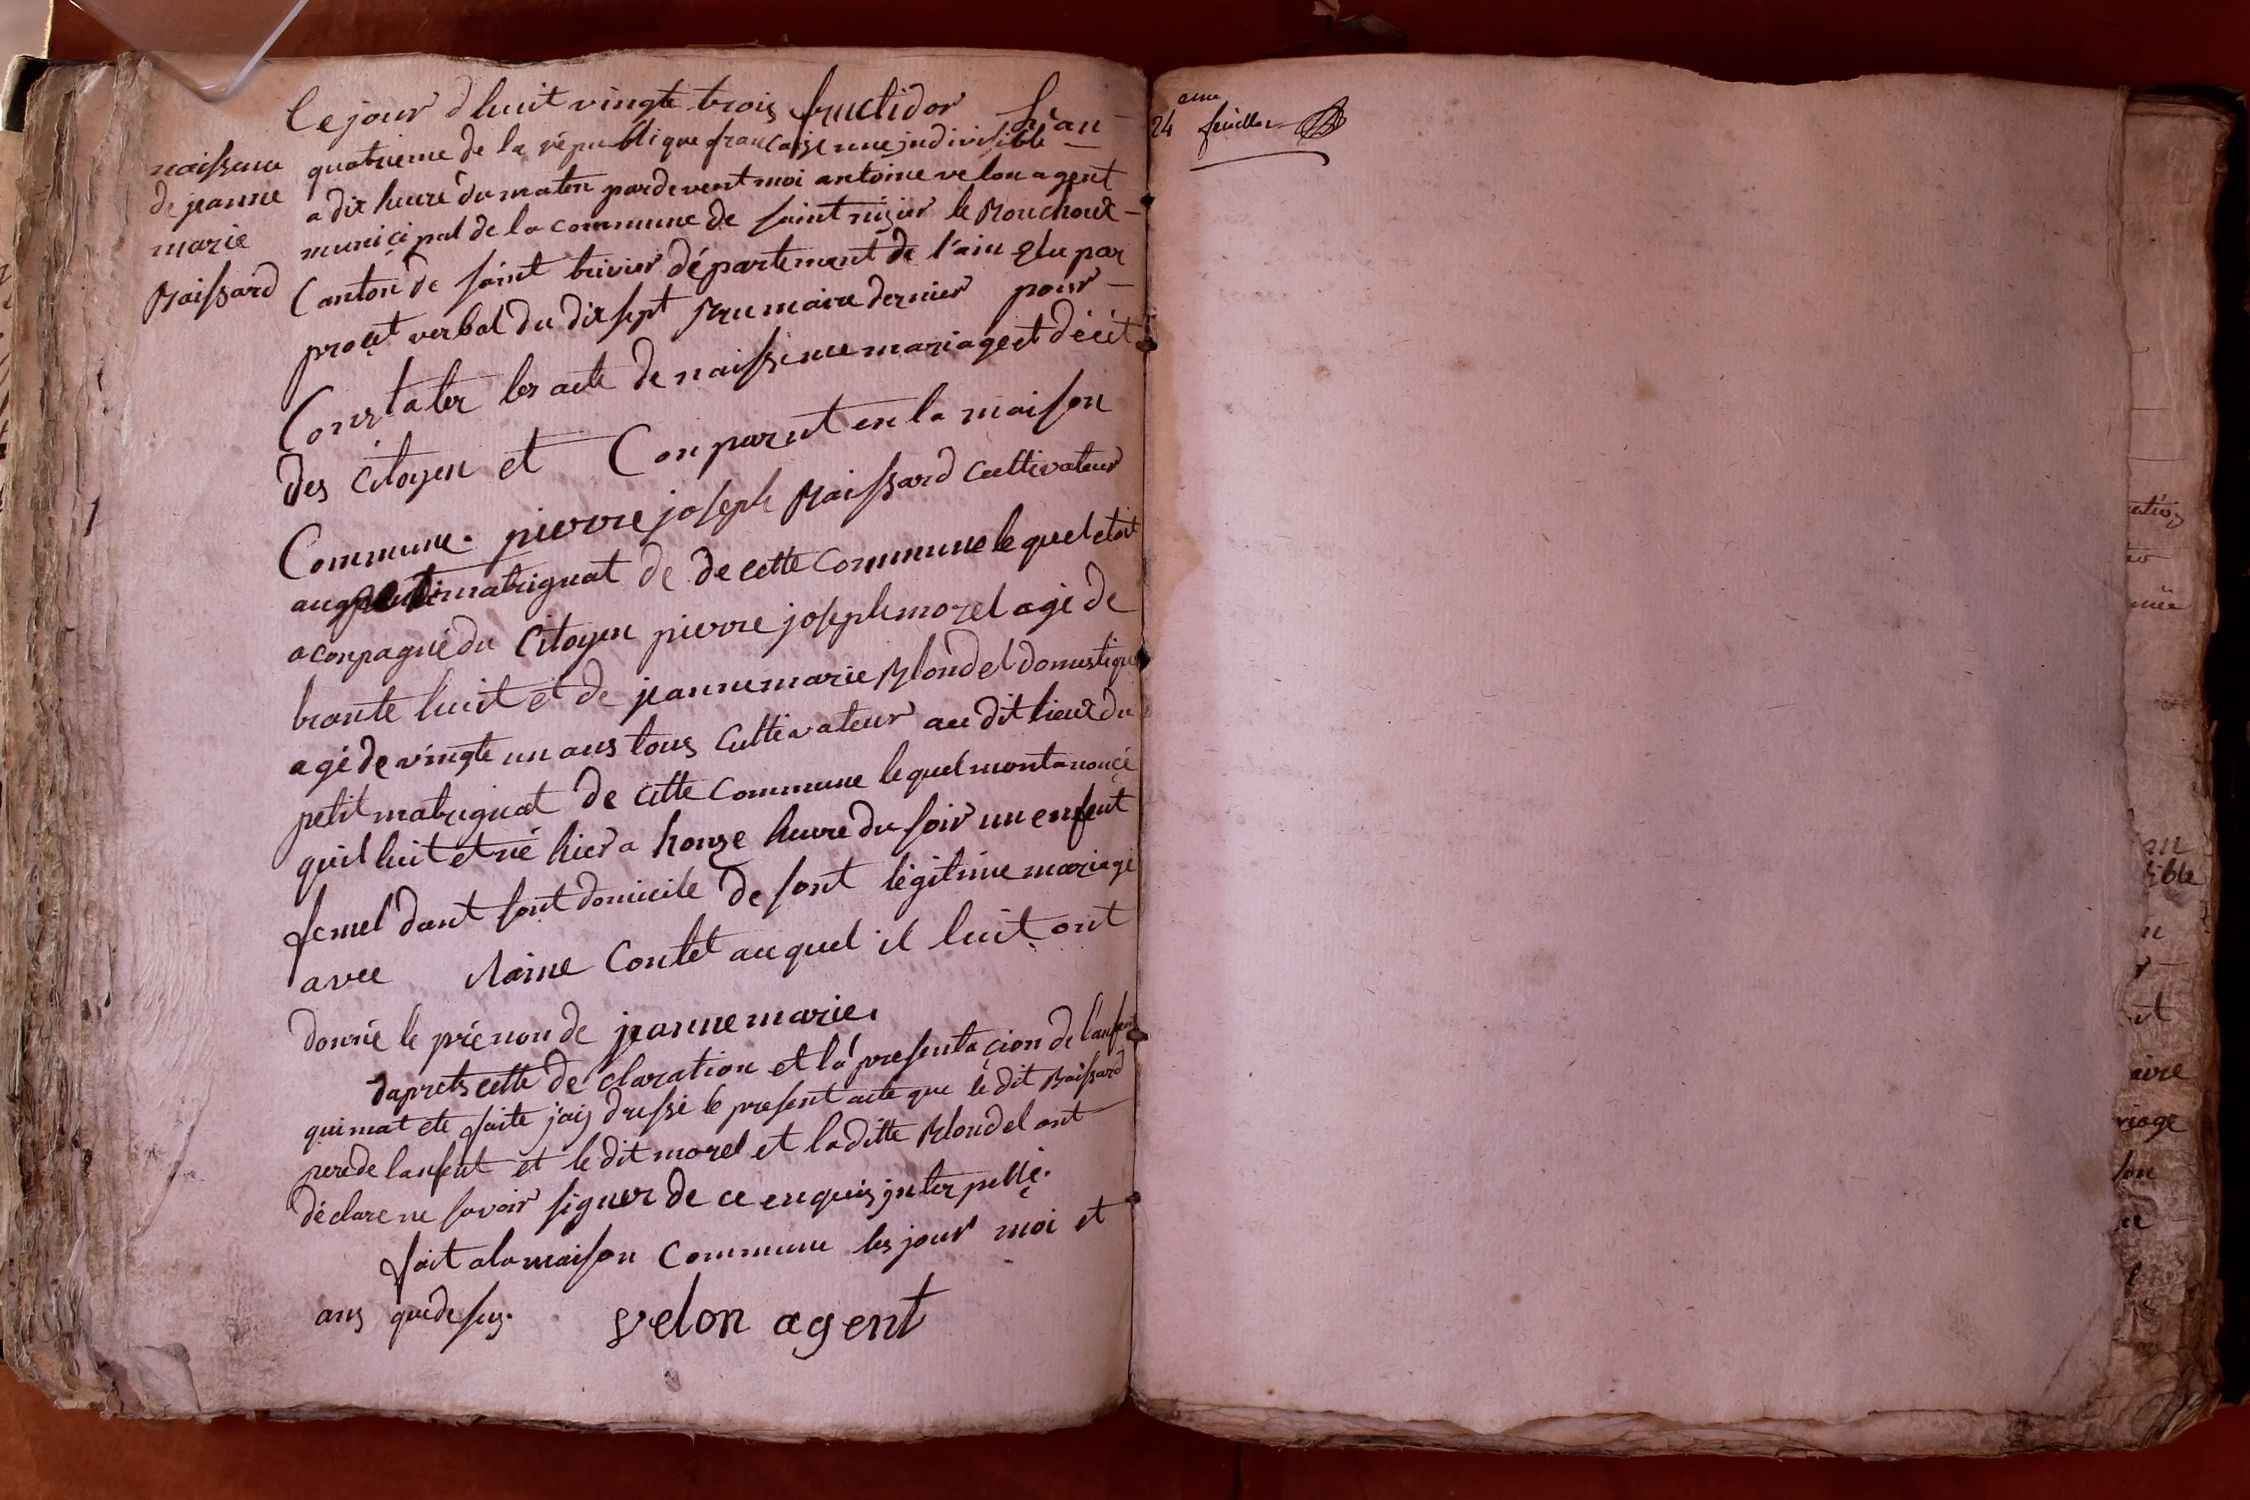 naissance
de jeanne
marie
Maissard
Ce jour d huit vingte trois fructidor L'an
quatrieme de la république française une jndivisible
a dix heure du matin pardevent moi antoine velon agent
municipal de la commune de saint nizier le Bouchoux
Canton de saint trivier département de l'ain elu par
procet verbal du dix sept Brumaire dernier pour
Constater les acte de naissence mariage et décèt
des citoyen et Conparut en la maison
Commune. pierre joseph Maissard cultivateur
au matrignat de de cette commune le quel etoit
aconpagné du Citoyen pierre joseph morel agé de
trante huit et de jeanne marie Blondel domestique
agé de vingte un ans tous cultivateur au dit lieux du
petit matrignat de cette commune le quel mont anoncé
quil huit et né hier a honze heure du soir un enfent
femel dant sont domicile de sont légitime mariage
avec Claine Contet au quel il huit ont
donné le prénon de jeanne marie.
daprets cette de claration et la presentaçion de lanfent
qui mat ete faite j'ais dressé le present acte que le dit Maissard
pere de lanfent et le dit morel et la ditte Blondel ont
déclare ne savoir signer de ce enquis jnterpellé.
fait a la maison Commune les jour moi et
ans que desus.
velon agent
24 feuillet